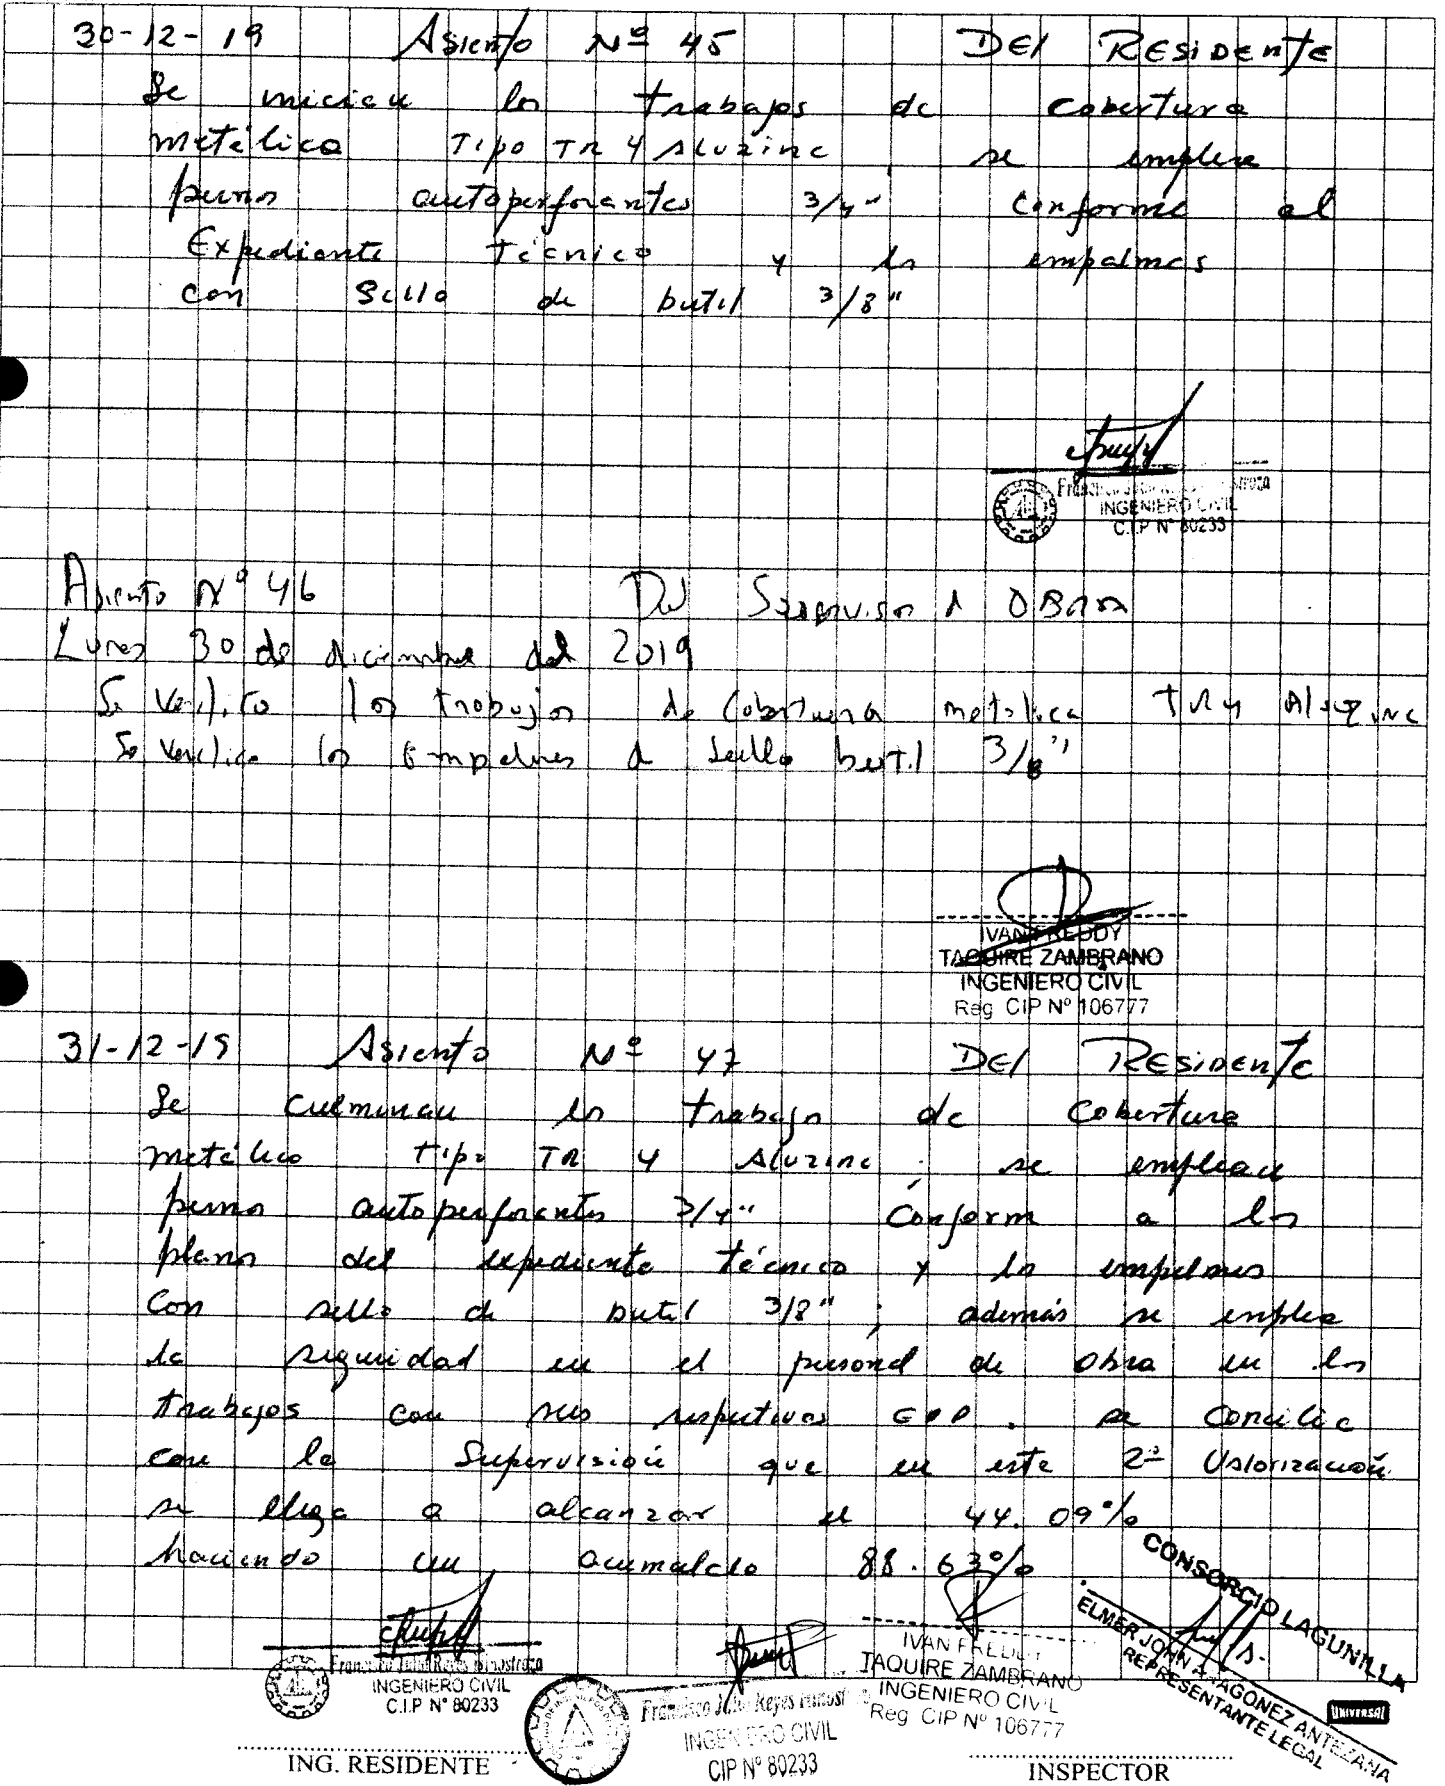 30-12-19 Asiento Nº 45 DEl RESIDENTE
Se inician los trabajos de cobertura
metálica Tipo TR 4 Aluzinc, se emplea
pernos autoperforantes 3/4" conforme al
Expediente técnico y los empalmes
con sello de butil 3/8"
INGENIERO CIVIL
C.I.P N° 80233
Asiento Nº 46 Del Supervisor d OBRA
Lunes 30 de diciembre del 2019
Se Verifico los trabajos de Cobertura metalica TR4 Aluzinc
Se Verifico los Empalmes d sello butil 3/8"
IVAN FREDDY
TAQUIRE ZAMBRANO
INGENIERO CIVIL
Reg CIP Nº 106777
31-12-19 Asiento Nº 47 DEl RESIDENTE
Se culminan los trabajos de cobertura
metálica tipo TR 4 Aluzinc ; se emplean
pernos autoperforantes 3/4" conform a los
planos del expediente técnico y los empalmes
con sello de butil 3/8" ; además se emplea
la seguridad en el personal de obra en los
trabajos con sus respectivos EPP . se concilia
con la Supervisión que en este 2ª Valorización
se llega a alcanzar el 44.09%
haciendo un acumalado 88.63%
CONSORCIO LAGUNILLA
ELMER JOHN ARAGONEZ ANTEZANA
REPRESENTANTE LEGAL
INGENIERO CIVIL
C.I.P N° 80233
Francisco Julio Reyes
INGENIERO CIVIL
CIP Nº 80233
IVAN FREDDY
TAQUIRE ZAMBRANO
INGENIERO CIVIL
Reg CIP Nº 106777
UNIVERSAL
ING. RESIDENTE
INSPECTOR